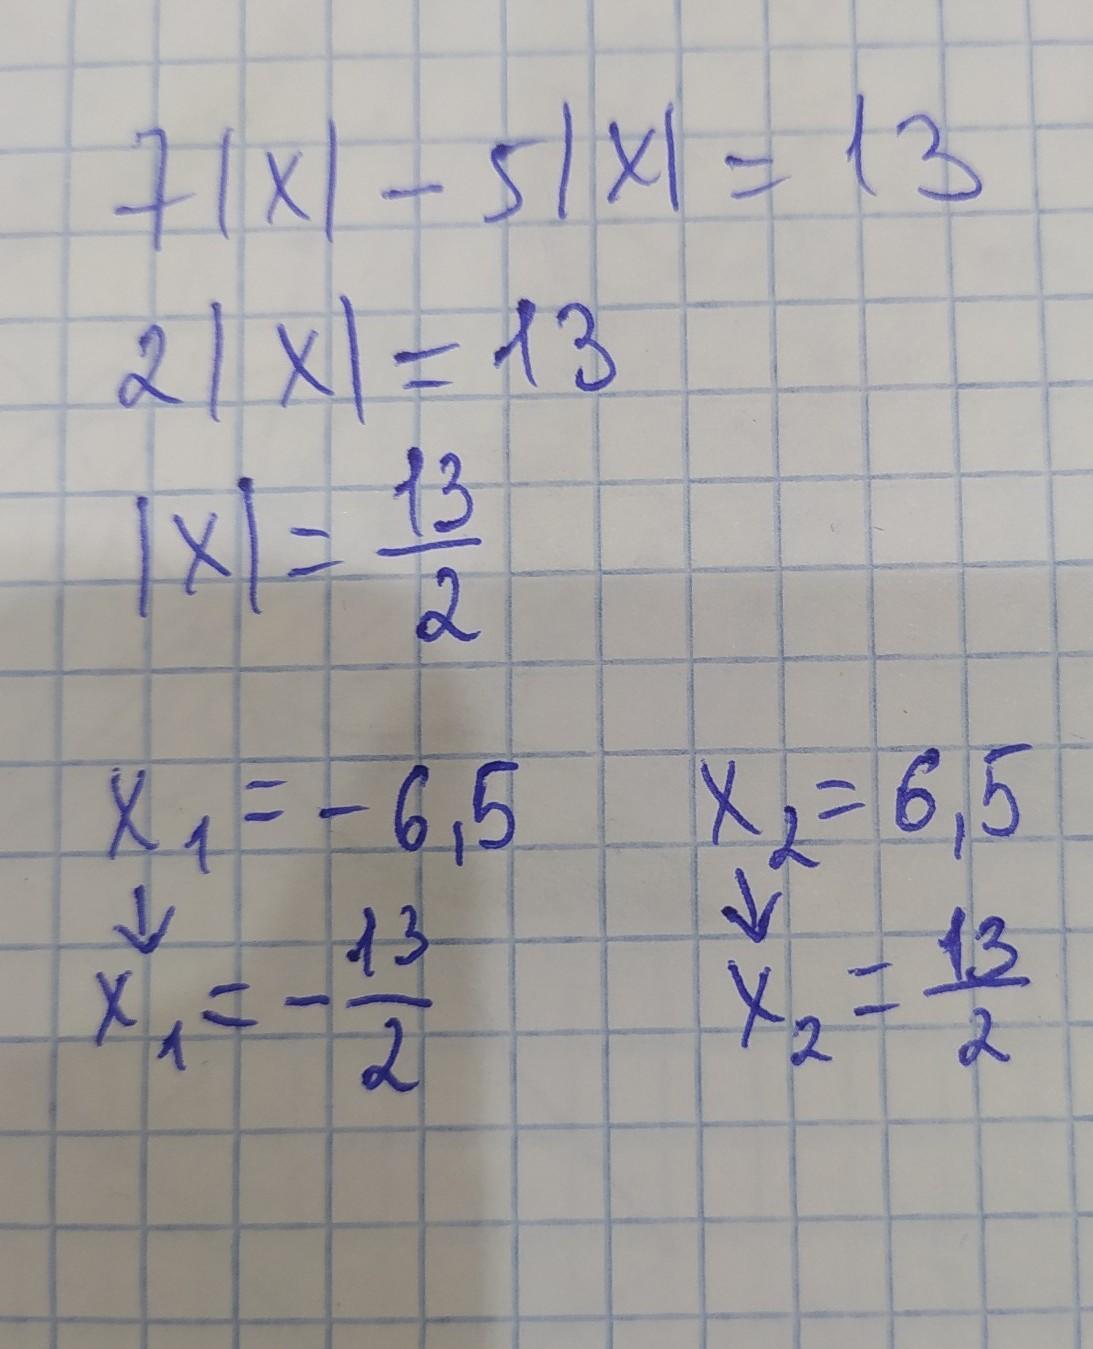 7|x| - 5|x| = 13
2|x| = 13
|x| = 13/2
x₁ = - 6,5 x₂ = 6,5
↓ ↓
x₁ = - 13/2 x₂ = 13/2